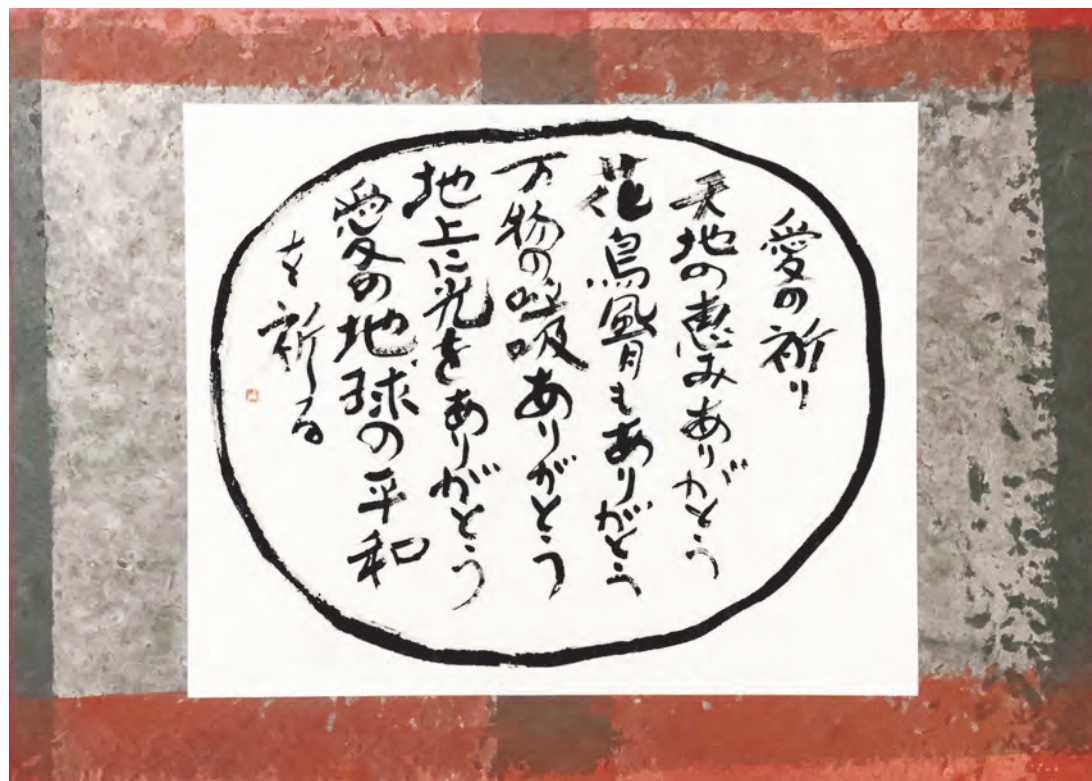 愛の祈り
天地の恵みありがとう
花鳥風月もありがとう
万物の呼吸ありがとう
地上に光をありがとう
愛の地球の平和
を祈る